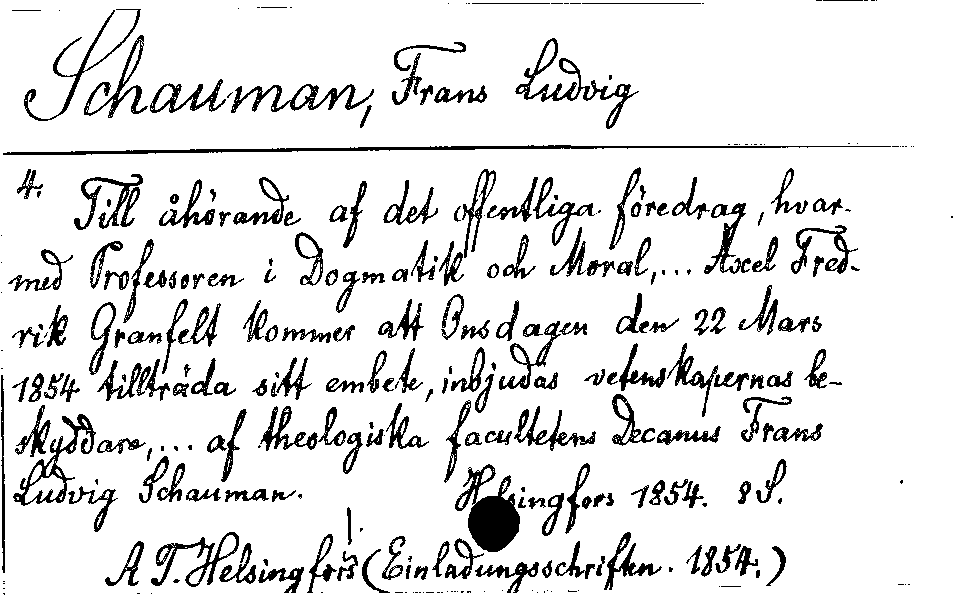 Schauman, Frans Ludvig
4. Till åhörande af det offentliga föredrag, hvar-
med Professoren i Dogmatik och Moral,... Axel Fred-
rik Granfelt kommer att Onsdagen den 22 Mars
1854 tillträda sitt embete, inbjudas vetenskapernas be-
skyddare,... af theologiska facultetens Decanus Frans
Ludvig Schauman. Helsingfors 1854. 8 S.
A T. Helsingfors (Einladungsschriften. 1854.)